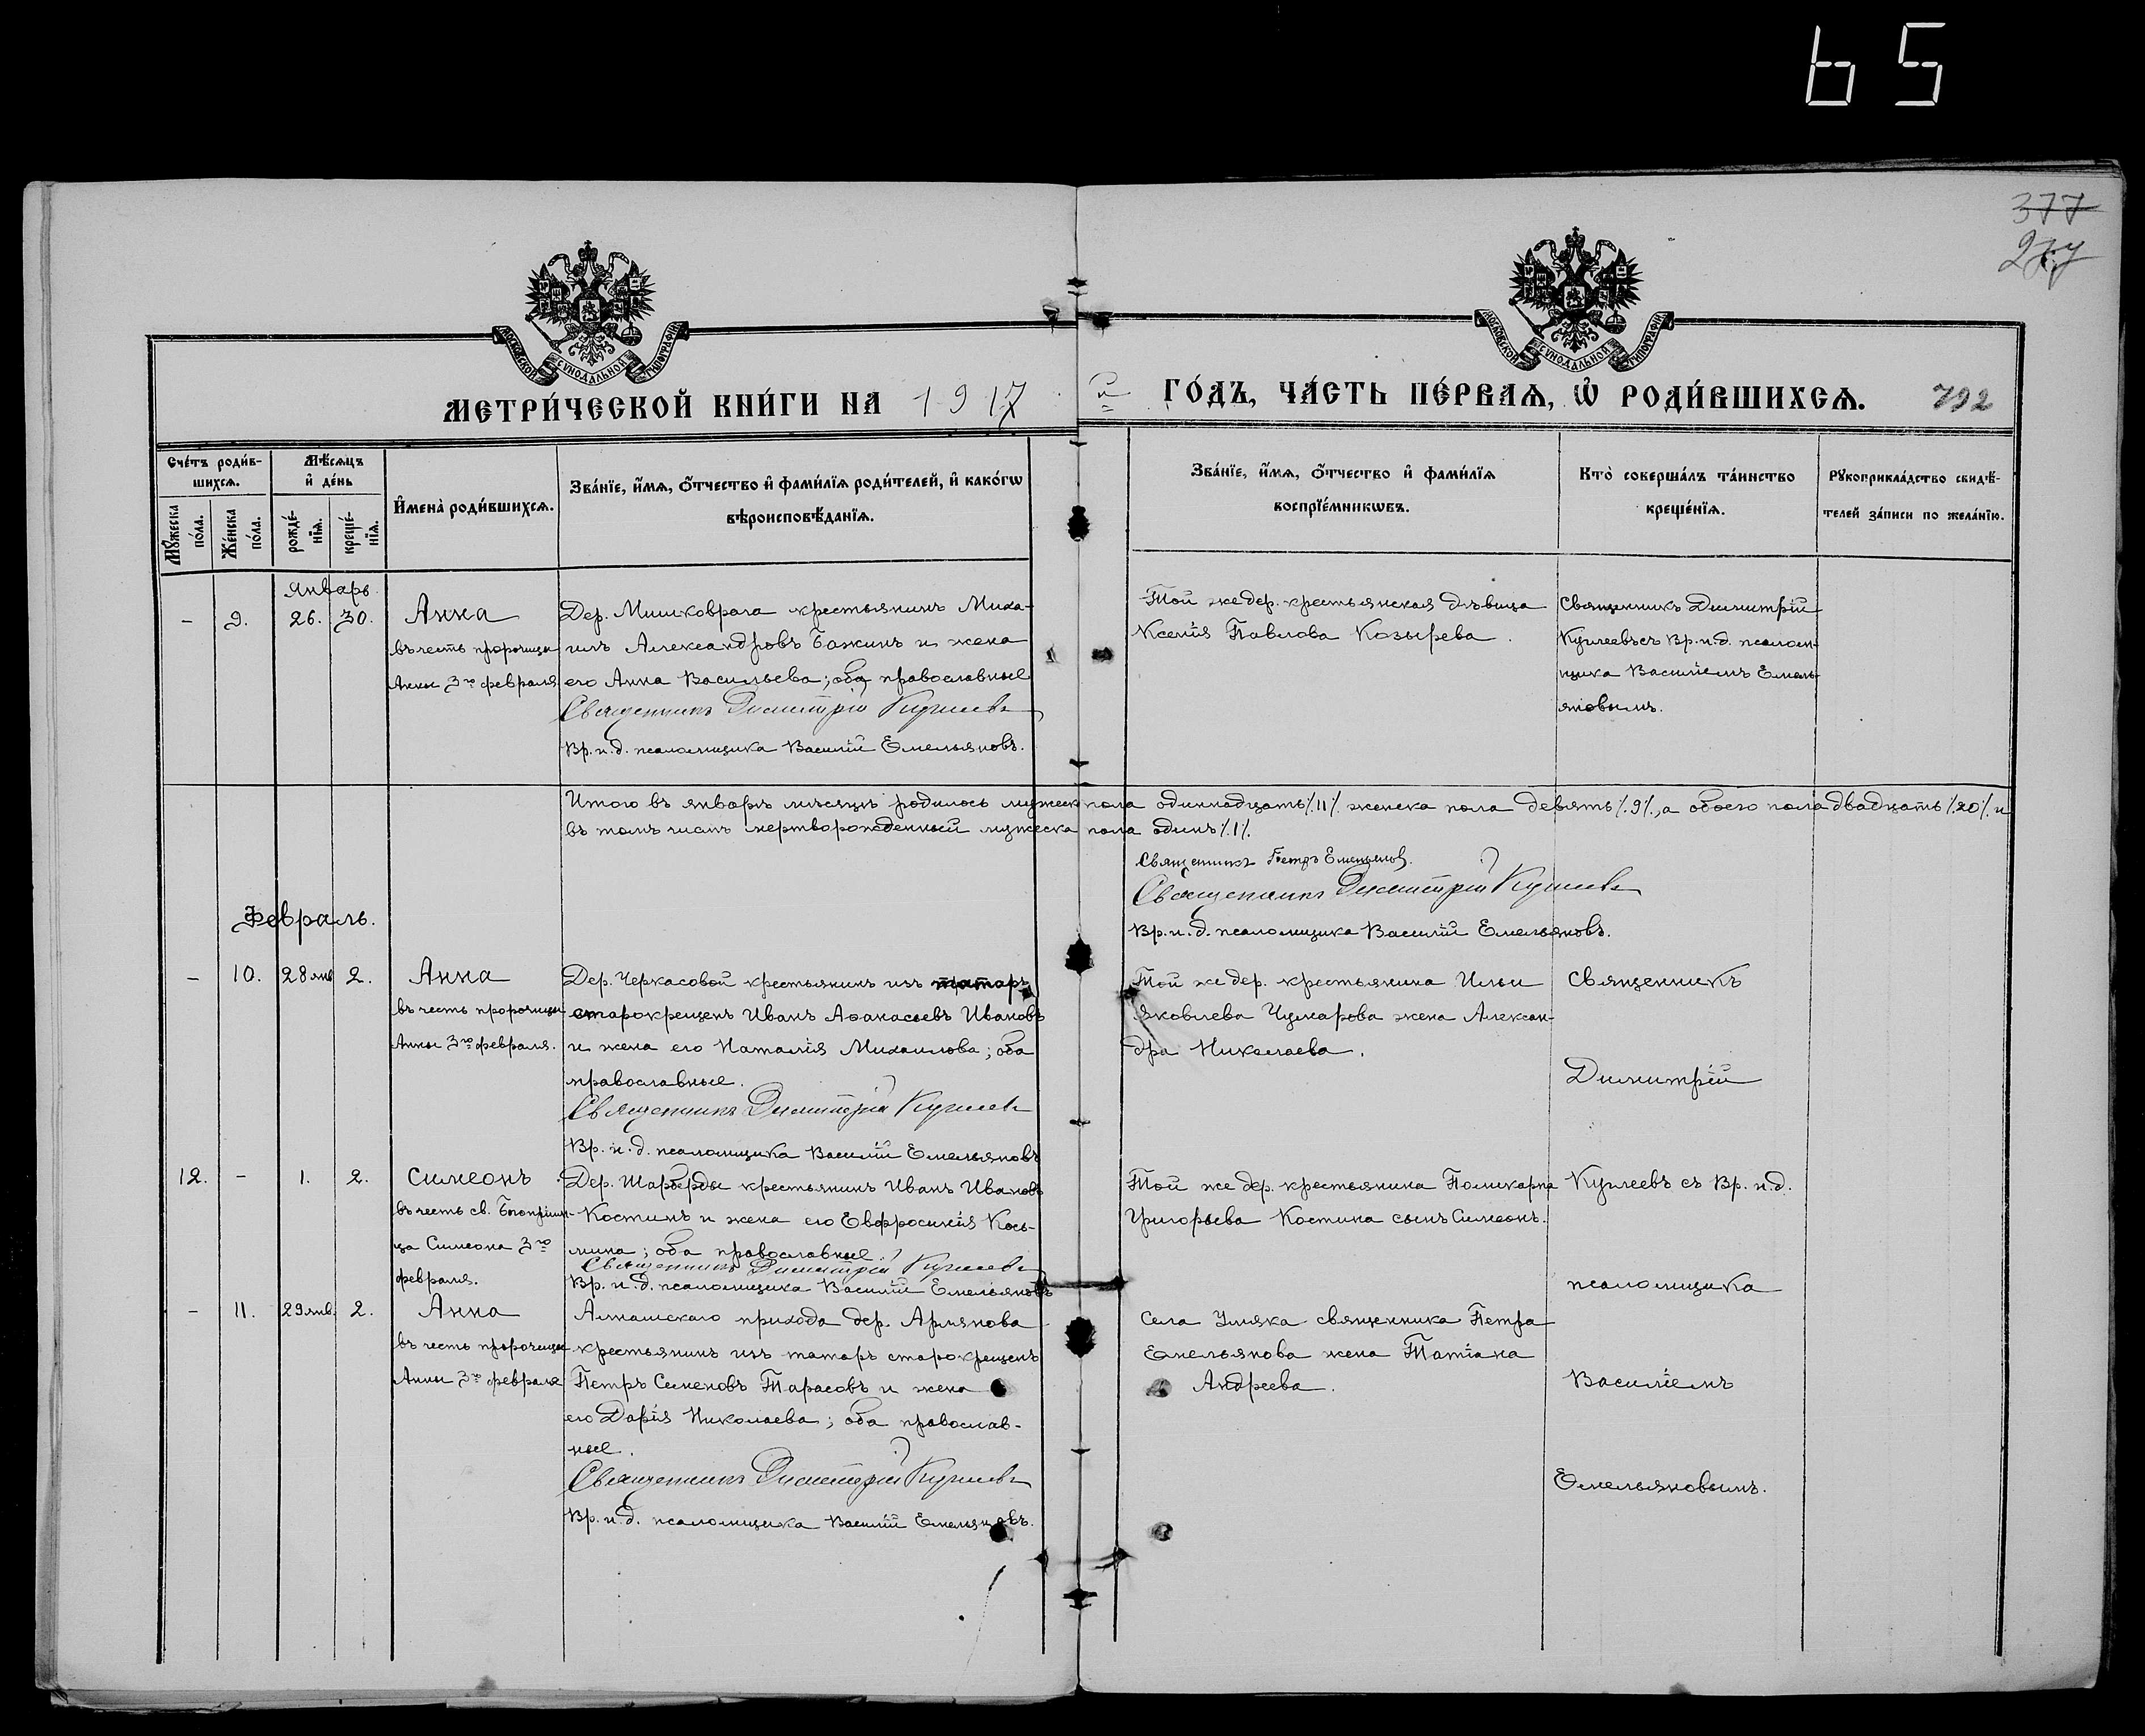 65
377
277
МОСКОВСКОЙ СѴНОДАЛЬНОЙ ТИПОГРАФІИ
МОСКОВСКОЙ СѴНОДАЛЬНОЙ ТИПОГРАФІИ
МЕТРИ́ЧЕСКОЙ КНИ́ГИ НА 1917 й ГО́ДЪ, ЧА́СТЬ ПЕ́РВАѦ, Ѽ РОДИ́ВШИХСѦ. 792
Сче́тъ роди́в-
шихсѧ.
Мѣ́сѧцъ
и҆ де́нь
Мꙋ́жеска по́ла.
Же́нска по́ла.
рожде́-
нїѧ.
креще́-
нїѧ.
И҆мена̀ роди́вшихсѧ.
Зва́нїе, и҆́мѧ, ѻ҆́тчество и҆ фами́лїѧ роди́телей, и҆ како́гѡ
вѣроисповѣ́данїѧ.
Зва́нїе, и҆́мѧ, ѻ҆́тчество и҆ фами́лїѧ
воспрїе́мникѡвъ.
Кто̀ соверша́лъ та́инство
креще́нїѧ.
Рꙋкоприкла́дство свидѣ́-
телей за́писи по жела́нїю.
Январь
- 9. 26. 30.
Анна
въ честь пророчицы
Анны 3го февраля
Дер. Мишковрага крестьянинъ Миха-
илъ Александровъ Бажинъ и жена
его Анна Васильева; оба православные
Священникъ Димитрій Куклеевъ
Вр. и. д. псаломщика Василій Емельяновъ.
Той же дер. крестьянская дѣвица
Ксенія Павлова Козырева.
Священникъ Димитрій
Куклеевъ съ Вр. и. д. псалом-
щика Василіемъ Емель-
яновымъ.
Итого въ январѣ мѣсяцѣ родилось мужеск пола одиннадцать /. 11 /. женска пола девять /. 9 /., а обоего пола двадцать /. 20 /. и
въ томъ числѣ мертворожденный мужеска пола одинъ /. 1 /.
Священникъ Петръ Емельяновъ.
Священникъ Димитрій Куклеевъ
Вр. и. д. псаломщика Василій Емельяновъ.
Февраль.
- 10. 28 янв 2.
Анна
въ честь пророчицы
Анны 3го февраля.
Дер. Черкасовой крестьянинъ изъ татаръ
старокрещенъ Иванъ Аѳанасьевъ Ивановъ
и жена его Наталія Михаилова; оба
православные.
Священникъ Димитрій Куклеевъ
Вр. и. д. псаломщика Василій Емельяновъ
Той же дер. крестьянина Ильи
Яковлева Чумарова жена Алексан-
дра Николаева.
Священникъ
Димитрій
12. - 1. 2.
Симеонъ
въ честь св. Богопріим-
ца Симеона 3го
февраля.
Дер. Шарберды крестьянинъ Иванъ Ивановъ
Костинъ и жена его Евфросинія Кось-
мина; оба православные.
Священникъ Димитрій Куклеевъ
Вр. и. д. псаломщика Василій Емельяновъ
Той же дер. крестьянина Поликарпа
Григорьева Костина сынъ Симеонъ.
Куклеевъ съ Вр. и. д.
псаломщика
- 11. 29 янв. 2.
Анна
въ честь пророчицы
Анны 3го февраля
Алнашскаго прихода дер. Армянова
крестьянинъ изъ татаръ старокрещенъ
Петръ Семеновъ Тарасовъ и жена
его Дарія Николаева; оба православ-
ные.
Священникъ Димитрій Куклеевъ
Вр. и. д. псаломщика Василій Емельяновъ.
Села Умяка священника Петра
Емельянова жена Татіана
Андреева.
Василіемъ
Емельяновымъ.